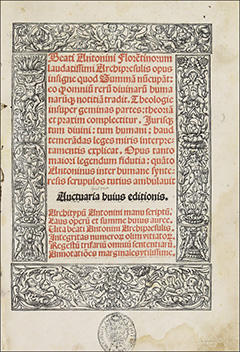 Beati Antonini Florẽtinorum
laudatissimi Archipresulis opus
insigne quod Summã nũcupãt:
eo q̃ omniũ rerũ divinarũ huma
narũq; notitiã tradit. Theologie
insuper geminas partes: theoriã
et praxim complectitur. Jurisq;
tum divini: tum humani: haud
temerãdas leges miris interpre
tamentis explicat. Opus tanto
maiori legendum fidutia: quãto
Antoninus inter humane synte-
resis scrupulos tutius ambulavit
Auctuaria huius editionis.
Architypũ Antonini manu scriptũ.
Laus operũ et summe huius auree.
Vita beati Antonini Archipresulis.
Integritas numerorũ olim vitiatorũ.
Regestũ trifariũ omniũ sententiarũ.
Annotatiões marginales utilissime.